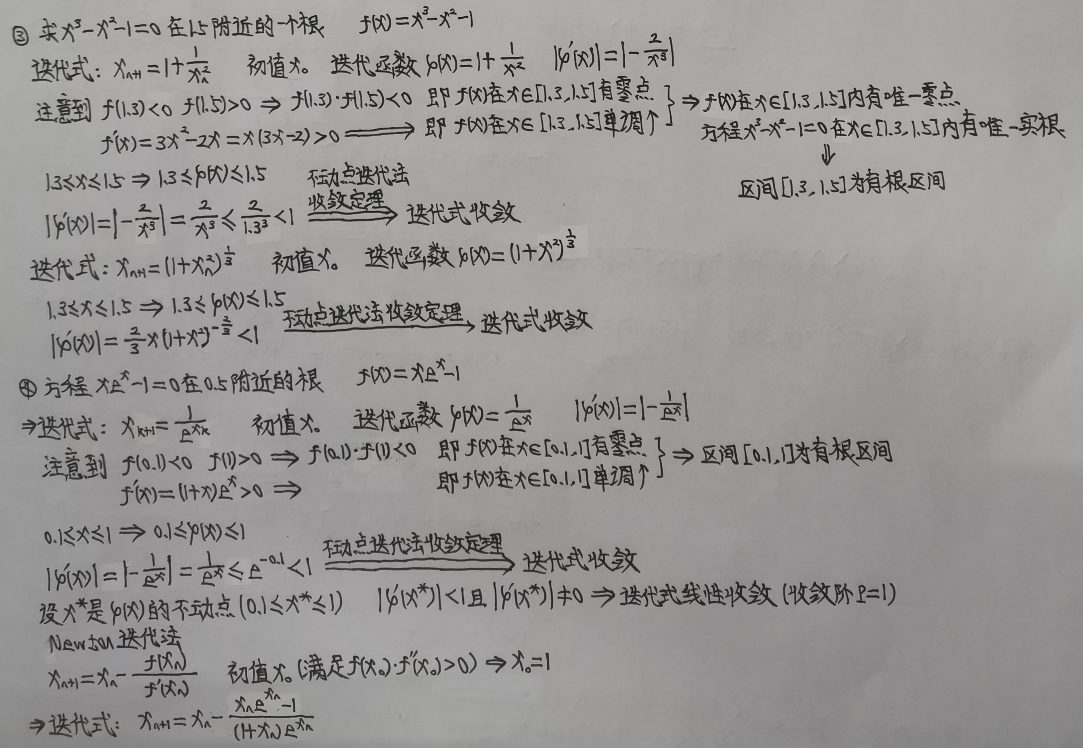 ③ 求x³-x²-1=0在1.5附近的一个根 f(x)=x³-x²-1
迭代式: xₙ₊₁=1+1/xₙ² 初值x₀ 迭代函数φ(x)=1+1/x² |φ'(x)|=|-2/x³|
注意到 f(1.3)<0 f(1.5)>0 ⇒ f(1.3)·f(1.5)<0 即f(x)在x∈[1.3,1.5]有零点
f'(x)=3x²-2x=x(3x-2)>0 ⟹ 即f(x)在x∈[1.3,1.5]单调↑
} ⇒ f(x)在x∈[1.3,1.5]内有唯一零点
方程x³-x²-1=0在x∈[1.3,1.5]内有唯一实根
⇓
区间[1.3,1.5]为有根区间
1.3≤x≤1.5 ⇒ 1.3≤φ(x)≤1.5
|φ'(x)|=|-2/x³|=2/x³≤2/1.3³<1
不动点迭代法
收敛定理
⟹ 迭代式收敛
迭代式: xₙ₊₁=(1+xₙ²)^(1/3) 初值x₀ 迭代函数φ(x)=(1+x²)^(1/3)
1.3≤x≤1.5 ⇒ 1.3≤φ(x)≤1.5
|φ'(x)|=2/3 x(1+x²)^(-2/3)<1
不动点迭代法收敛定理 ⟹ 迭代式收敛
④ 方程xeˣ-1=0在0.5附近的根 f(x)=xeˣ-1
⇒迭代式: xₖ₊₁=1/e^(xₖ) 初值x₀ 迭代函数φ(x)=1/eˣ |φ'(x)|=|-1/eˣ|
注意到 f(0.1)<0 f(1)>0 ⇒ f(0.1)·f(1)<0 即f(x)在x∈[0.1,1]有零点
f'(x)=(1+x)eˣ>0 ⇒ 即f(x)在x∈[0.1,1]单调↑
} ⇒ 区间[0.1,1]为有根区间
0.1≤x≤1 ⇒ 0.1≤φ(x)≤1
|φ'(x)|=|-1/eˣ|=1/eˣ≤e^(-0.1)<1 不动点迭代法收敛定理 ⟹ 迭代式收敛
设x*是φ(x)的不动点(0.1≤x*≤1) |φ'(x*)|<1且|φ'(x*)|≠0 ⇒ 迭代式线性收敛(收敛阶P=1)
Newton迭代法
xₙ₊₁=xₙ-f(xₙ)/f'(xₙ) 初值x₀(满足f(x₀)·f''(x₀)>0) ⇒ x₀=1
⇒迭代式: xₙ₊₁=xₙ-(xₙe^(xₙ)-1)/((1+xₙ)e^(xₙ))